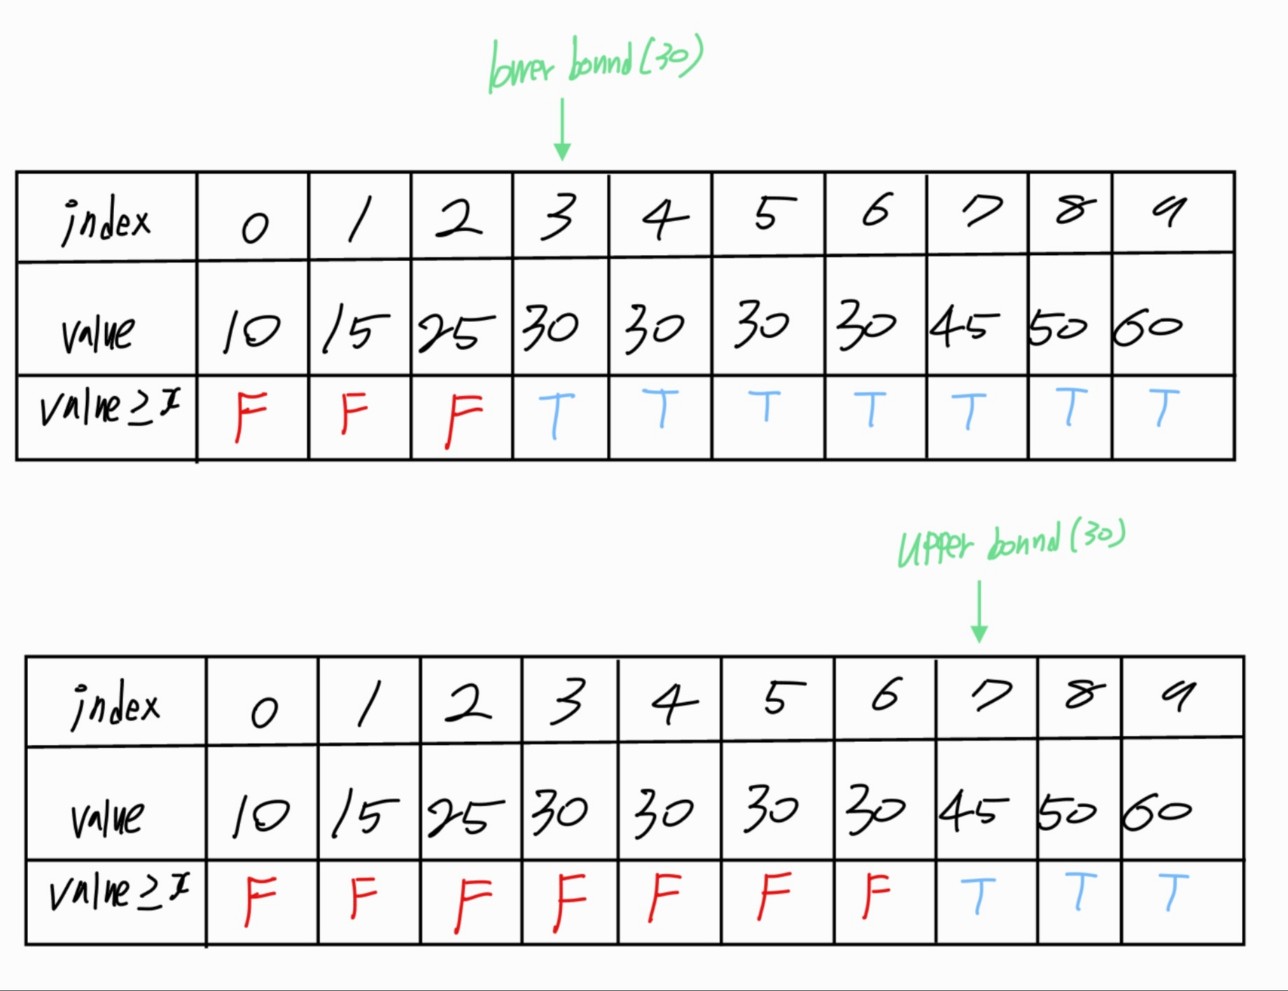 lower bound(30)
index 0 1 2 3 4 5 6 7 8 9
value 10 15 25 30 30 30 30 45 50 60
value ≥ x F F F T T T T T T T
upper bound(30)
index 0 1 2 3 4 5 6 7 8 9
value 10 15 25 30 30 30 30 45 50 60
value ≥ x F F F F F F F T T T